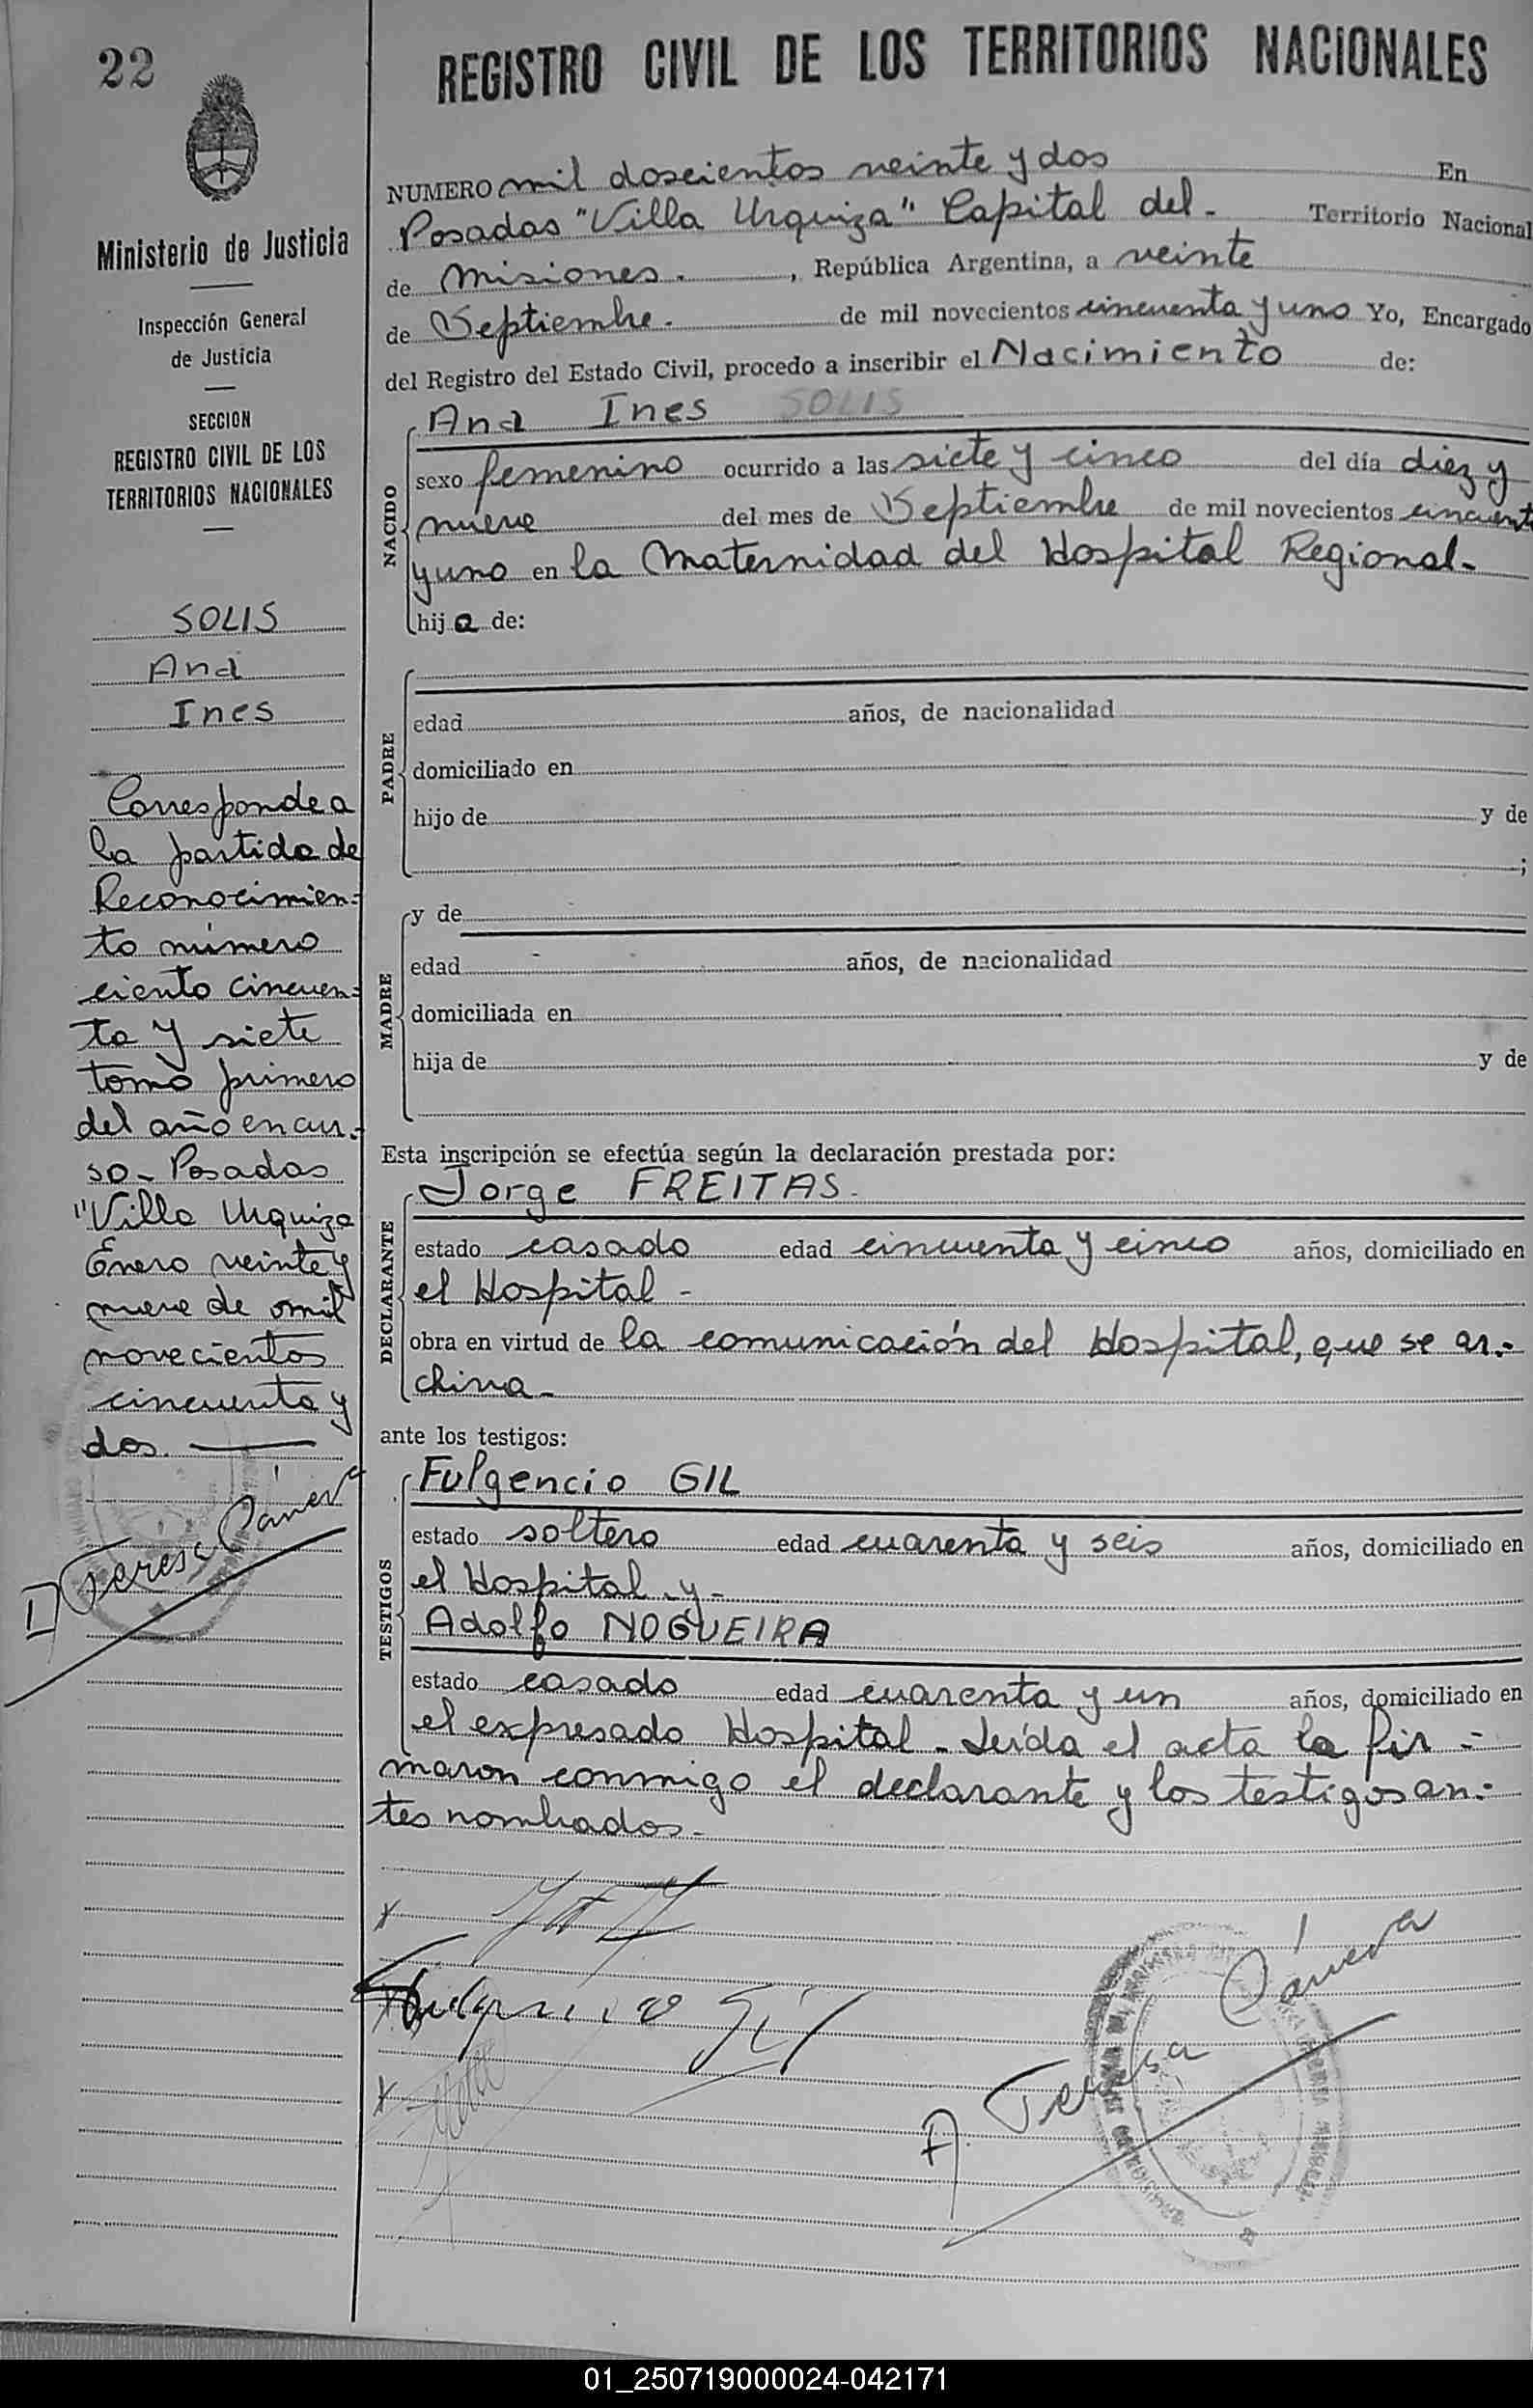 22
REGISTRO CIVIL DE LOS TERRITORIOS NACIONALES
Ministerio de Justicia
Inspección General
de Justicia
SECCION
REGISTRO CIVIL DE LOS
TERRITORIOS NACIONALES
SOLIS
Ana
Ines
Corresponde a
la partida de
Reconocimien=
to número
ciento cincuen=
ta y siete
tomo primero
del año en cur-
so - Posadas
"Villa Urquiza
Enero veinte y
nueve de mil
novecientos
cincuenta y
dos.
Teresa Cáneva
NUMERO mil doscientos veinte y dos En
Posadas "Villa Urquiza" Capital del - Territorio Nacional
de Misiones. , República Argentina, a veinte
de Septiembre. de mil novecientos cincuenta y uno Yo, Encargado
del Registro del Estado Civil, procedo a inscribir el Nacimiento de:
Ana Ines SOLIS
NACIDO
sexo femenino ocurrido a las siete y cinco del día diez y
nueve del mes de Septiembre de mil novecientos cincuenta
y uno en la Maternidad del Hospital Regional-
hija de:
PADRE
edad años, de nacionalidad
domiciliado en
hijo de y de
;
MADRE
y de
edad años, de nacionalidad
domiciliada en
hija de y de
Esta inscripción se efectúa según la declaración prestada por:
DECLARANTE
Jorge FREITAS.
estado casado edad cincuenta y cinco años, domiciliado en
el Hospital -
obra en virtud de la comunicación del Hospital, que se ar.-
chiva-
ante los testigos:
TESTIGOS
Fulgencio GIL
estado soltero edad cuarenta y seis años, domiciliado en
el Hospital - y -
Adolfo NOGUEIRA
estado casado edad cuarenta y un años, domiciliado en
el expresado Hospital - Leída el acta la fir =
maron conmigo el declarante y los testigos an:
tes nombrados.-
Fulgencio Gil
A. Teresa Cáneva
01_250719000024-042171